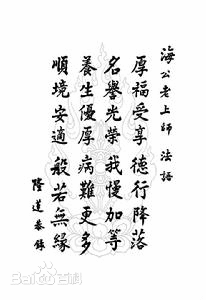 海公老上師 法語
厚福受享 德行降落
名譽光榮 我慢加等
養生優厚 病難更多
順境安適 般若無緣
隆蓮恭錄
Bai百科